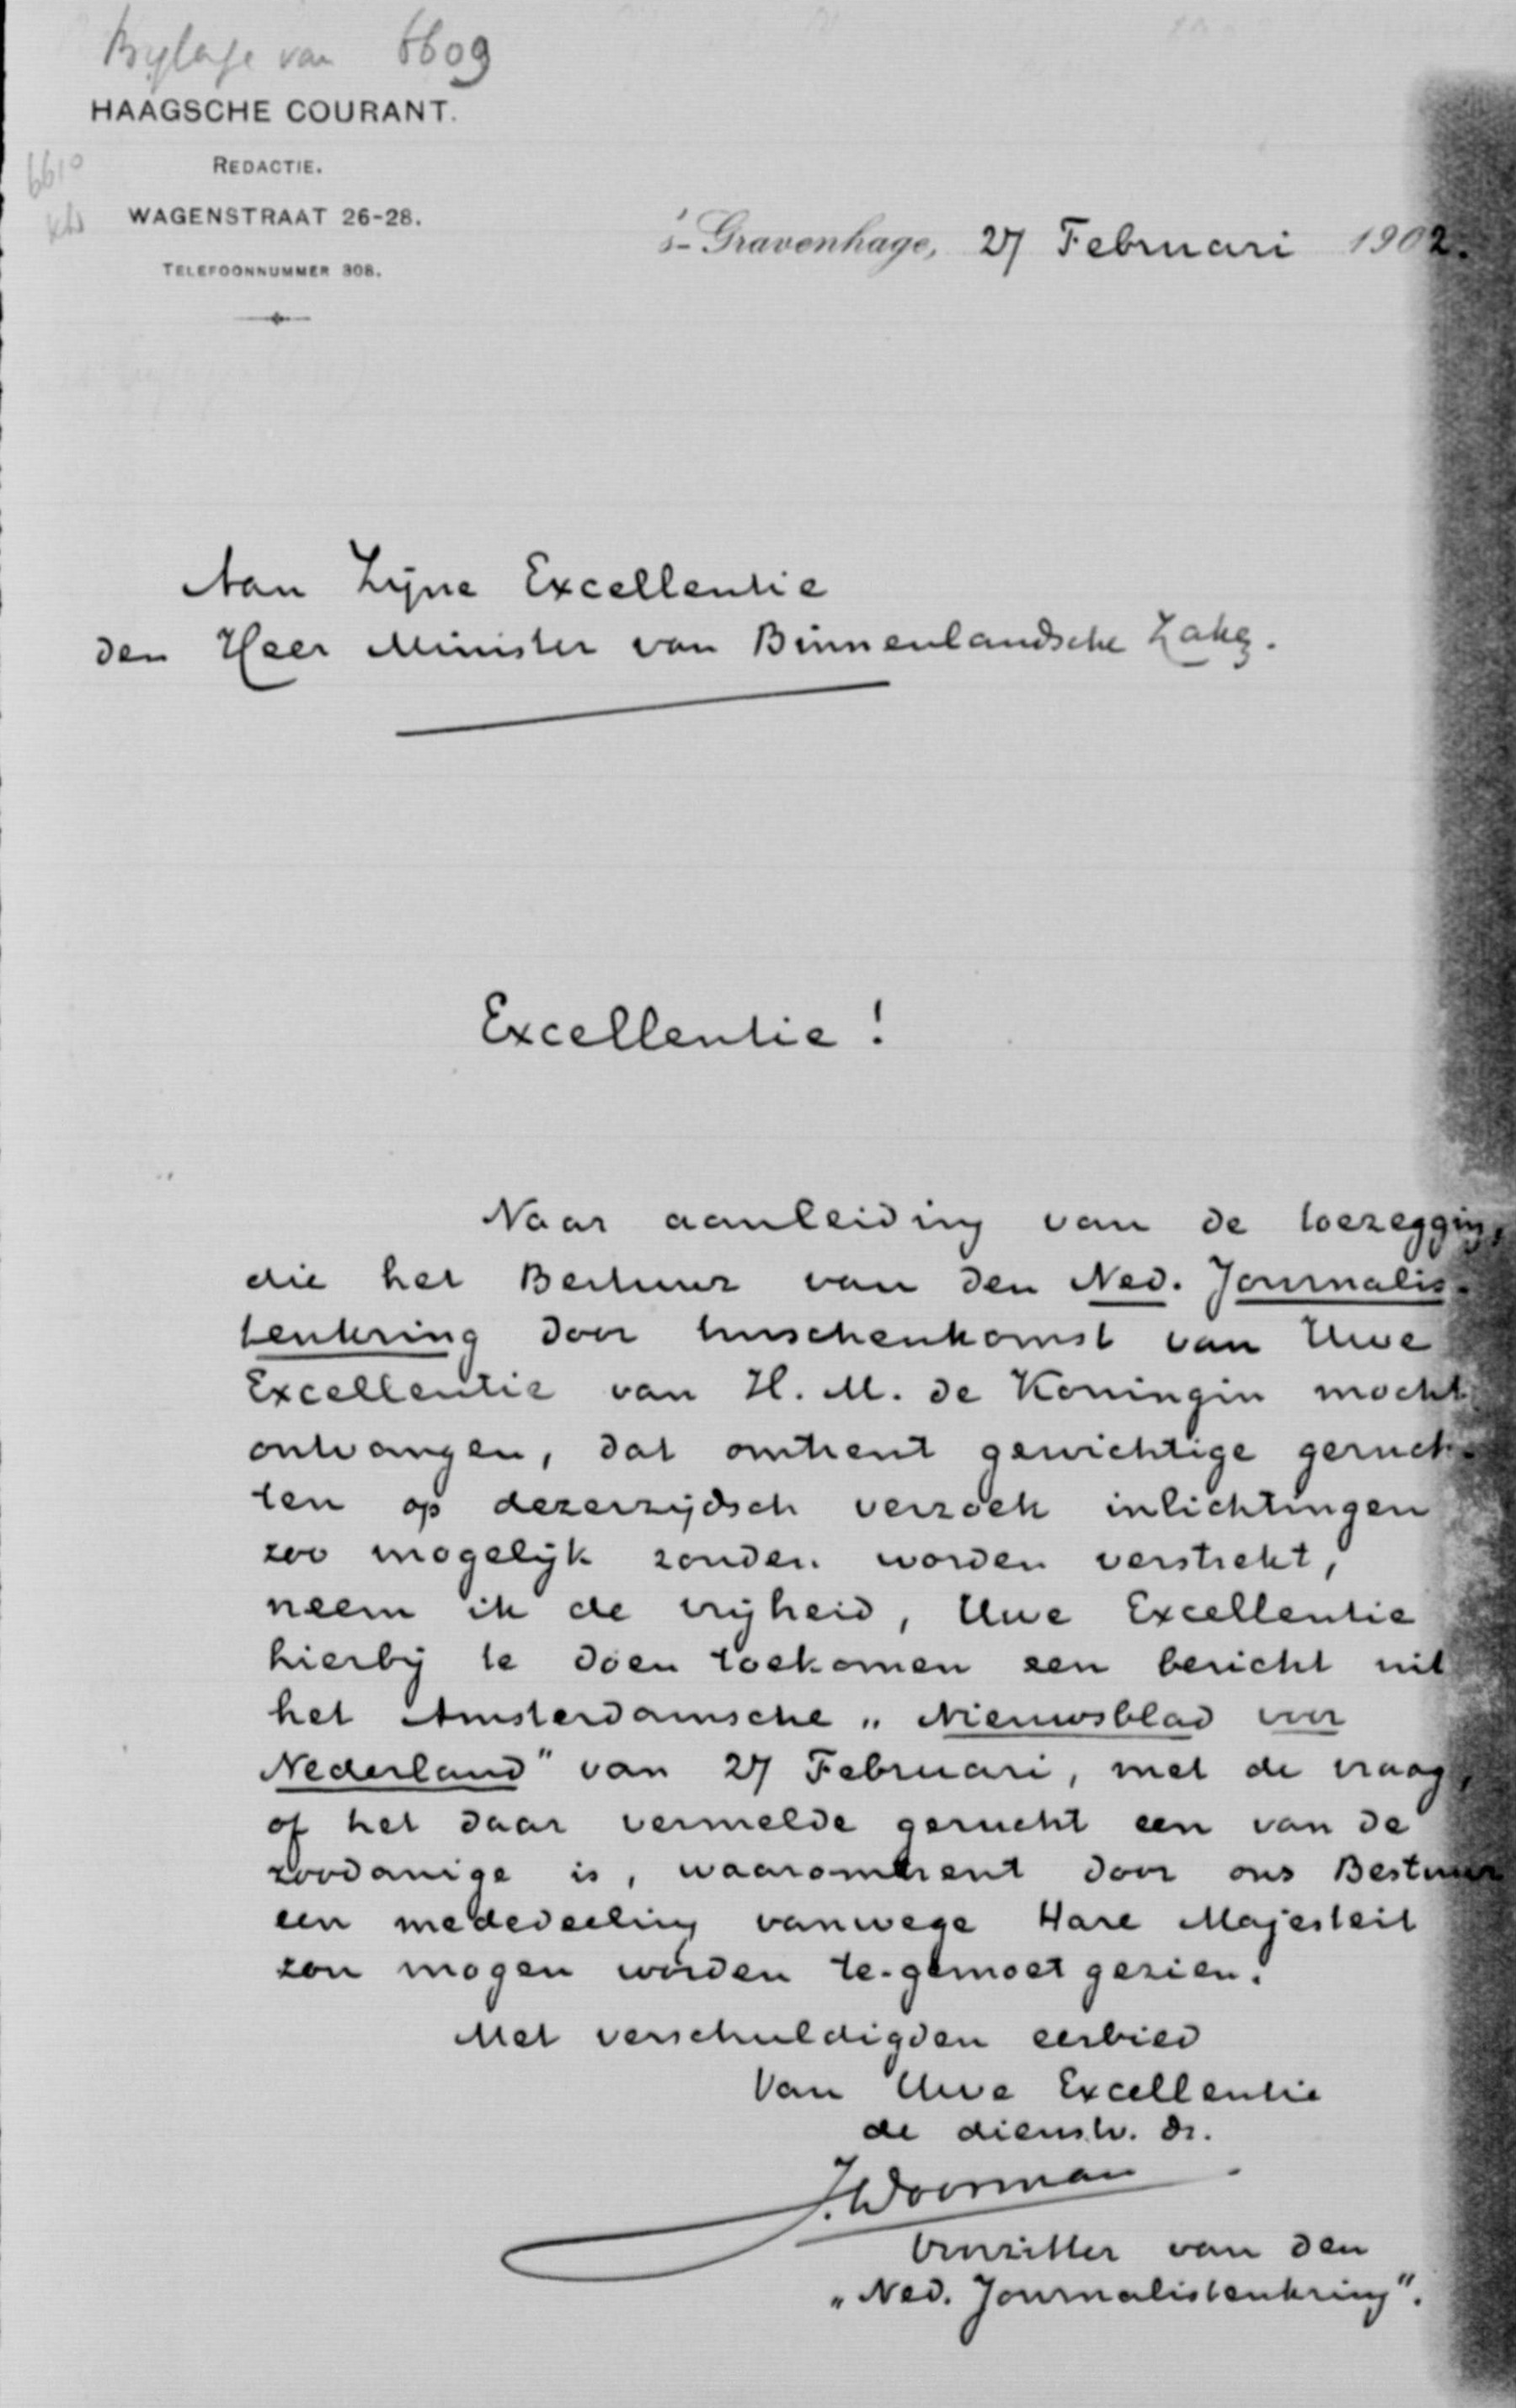 Bijlage van 6609
HAAGSCHE COURANT.
6610
REDACTIE.
WAGENSTRAAT 26-28.
TELEFOONNUMMER 308.
's-Gravenhage, 27 Februari 1902.
Aan Zijne Excellentie
den Heer Minister van Binnenlandsche Zaken.
Excellentie!
Naar aanleiding van de toezegging,
die het Bestuur van den Ned. Journalis-
tenkring door tusschenkomst van Uwe
Excellentie van H. M. de Koningin mocht
ontvangen, dat omtrent gewichtige geruch-
ten op dezerzijdsch verzoek inlichtingen
zoo mogelijk zouden worden verstrekt,
neem ik de vrijheid, Uwe Excellentie
hierbij te doen toekomen een bericht uit
het Amsterdamsche „Nieuwsblad voor
Nederland" van 27 Februari, met de vraag,
of het daar vermelde gerucht een van de
zoodanige is, waaromtrent door ons Bestuur
een mededeeling vanwege Hare Majesteit
zou mogen worden te-gemoet gezien.
Met verschuldigden eerbied
Van Uwe Excellentie
de dienstw. dr.
J. Woorman
Voorzitter van den
„Ned. Journalistenkring".